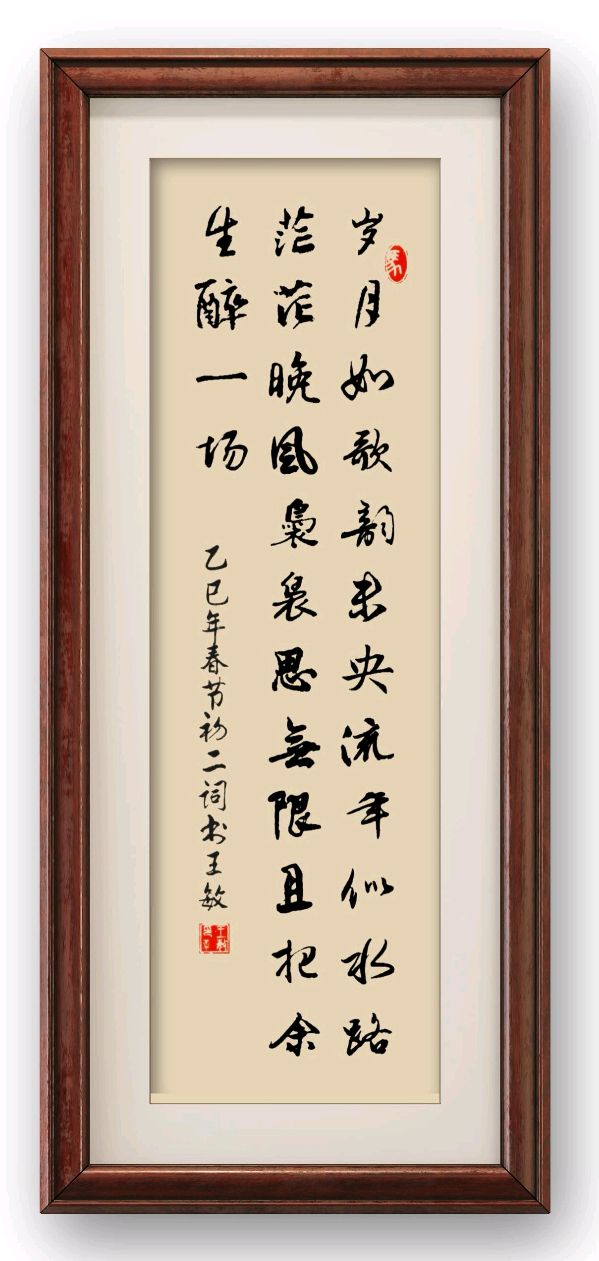 岁月如歌韵未央流年似水路
茫茫晚风袅袅思無限且把余
生醉一场
乙巳年春节初二词书王敏